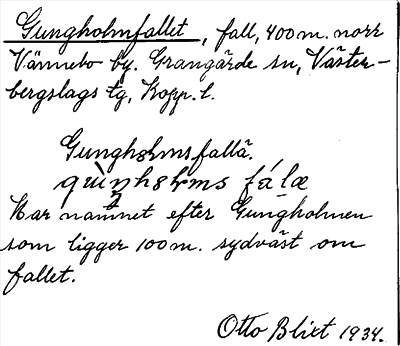 Gungholmfallet, fall, 400 m. norr
Vännebo by. Grangärde sn, Väster-
bergslags tg, Kopp. l.
Gungholmsfallä.
Har namnet efter Gungholmen
som ligger 100 m. sydväst om
fallet.
Otto Blixt 1934.